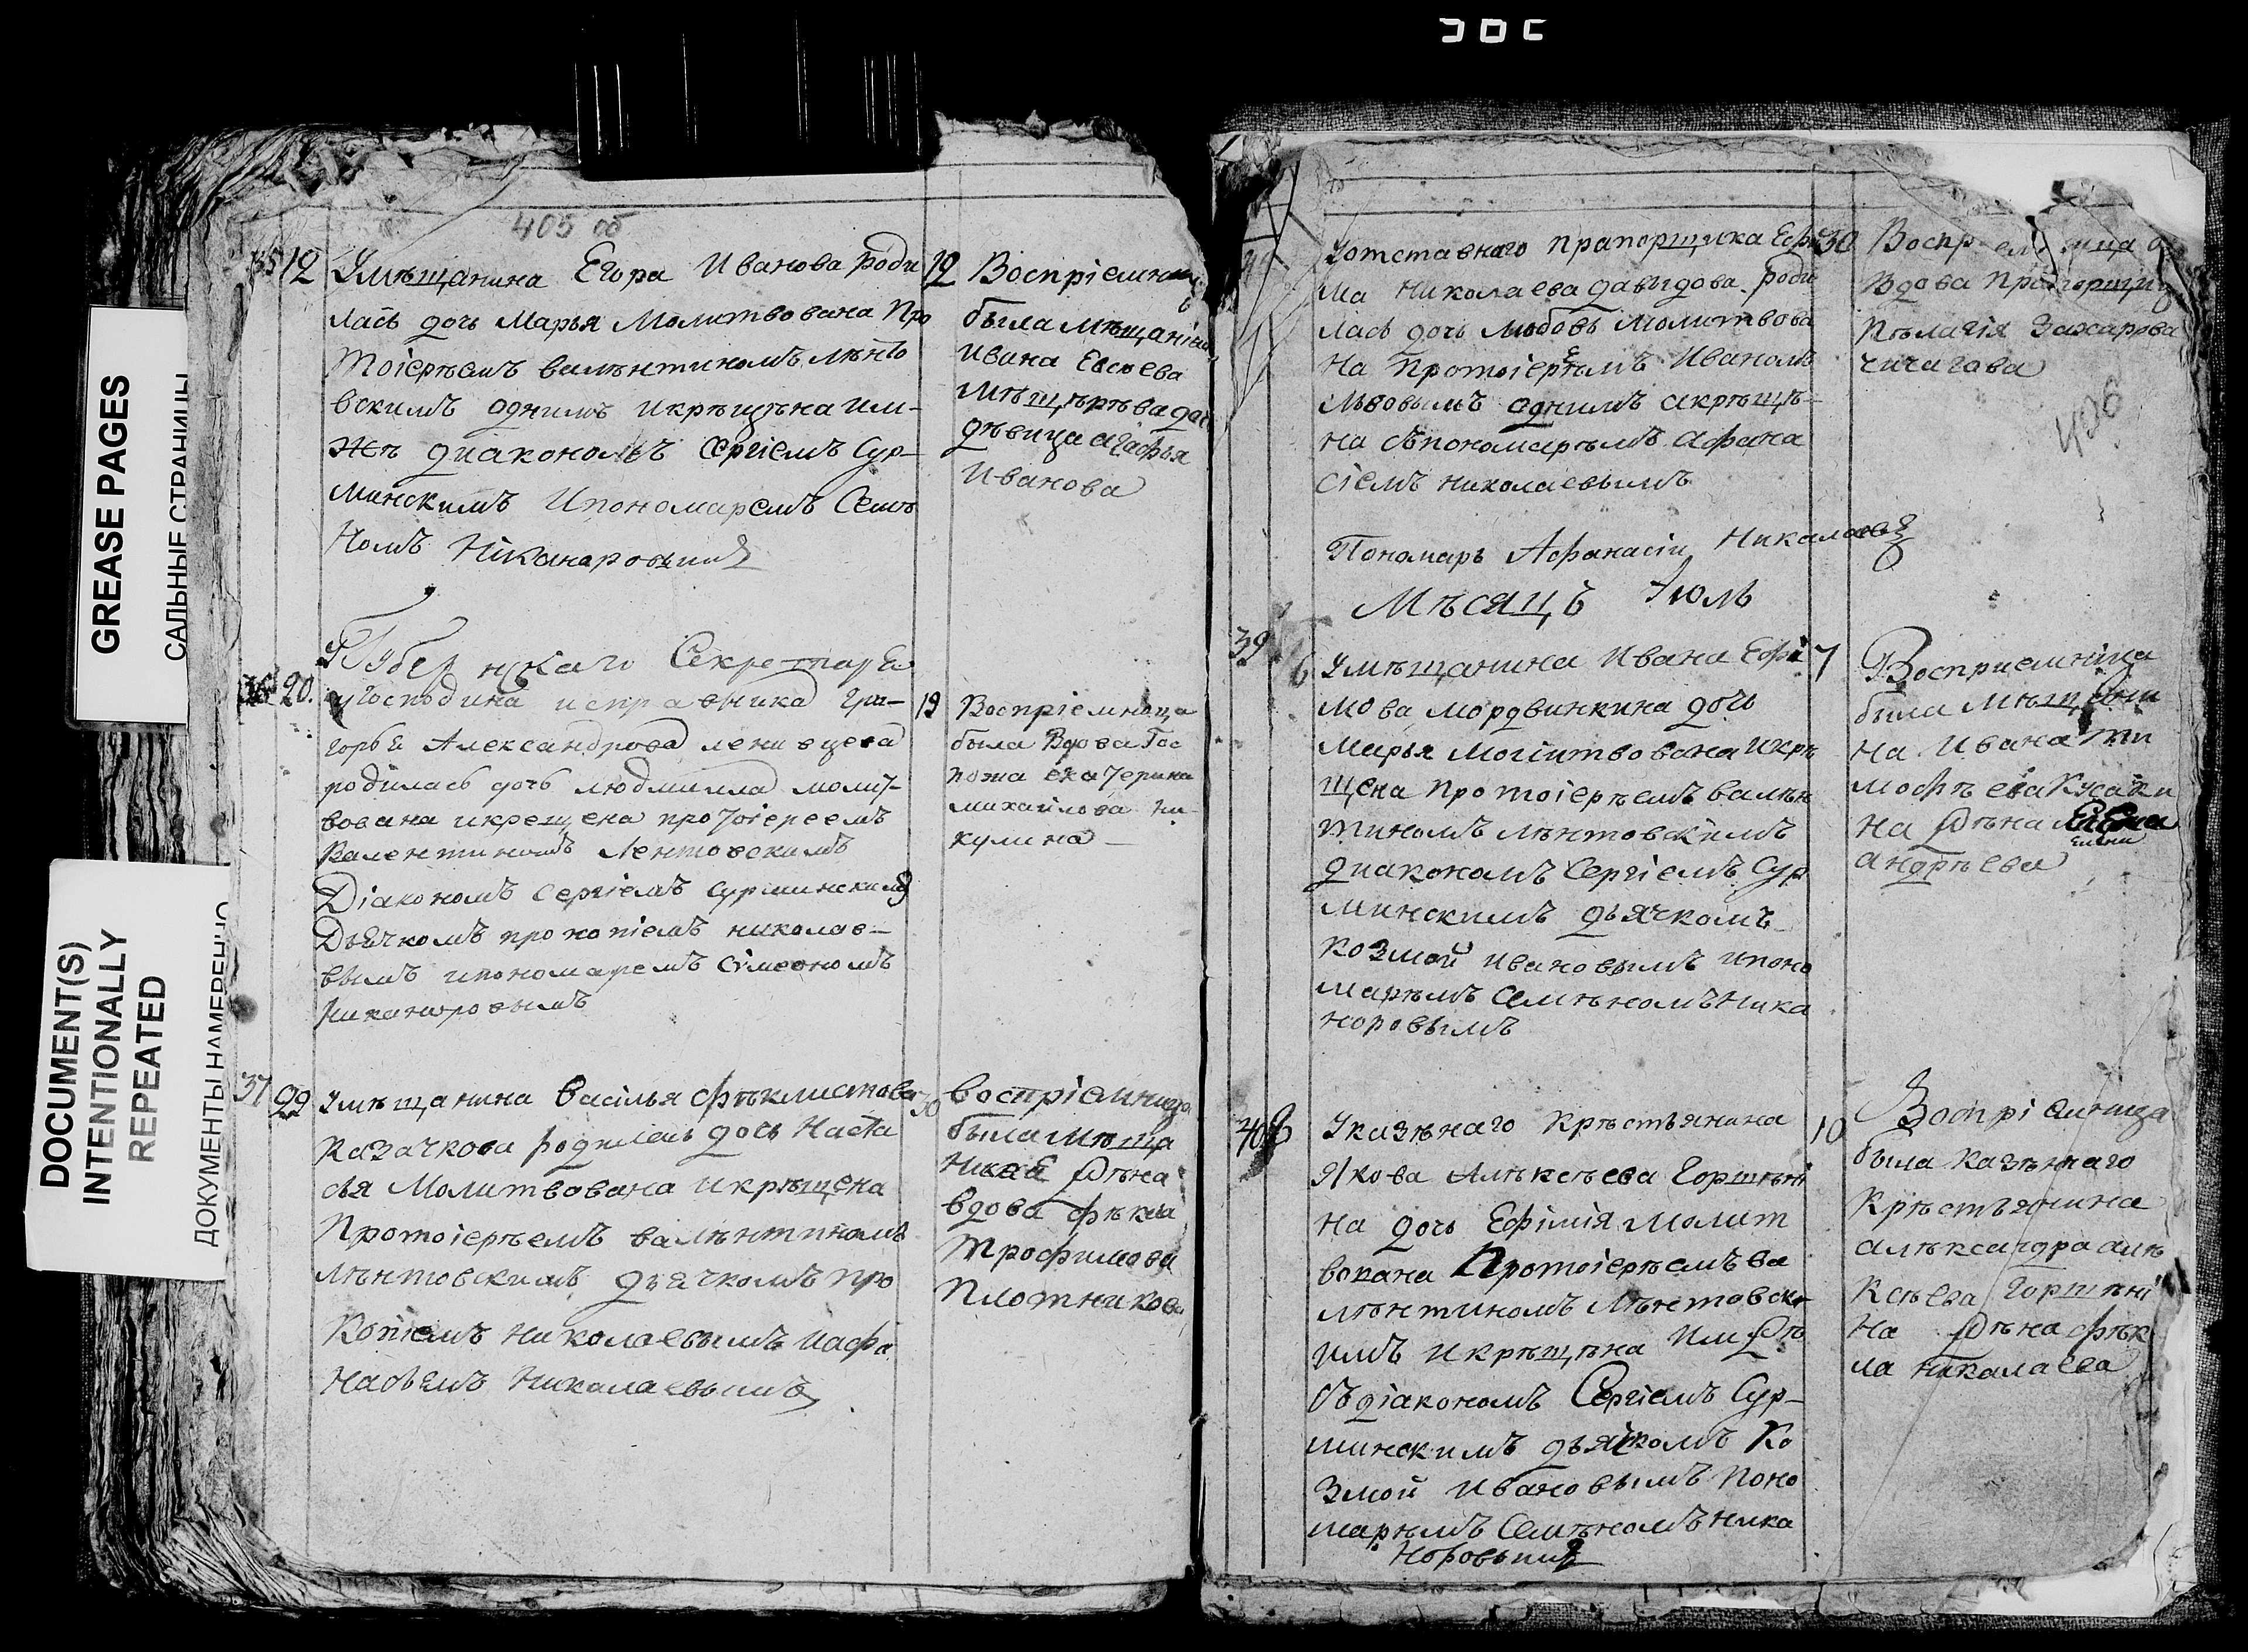 GREASE PAGES
САЛЬНЫЕ СТРАНИЦЫ
DOCUMENT(S)
INTENTIONALLY
REPEATED
ДОКУМЕНТЫ НАМЕРЕННО
405 об
35 12 Умѣщанина Егора Иванова роди
лась дочь Марья Молитвована Про
тоіерѣемъ валѣнтиномъ лѣнто
вскимъ однимъ икрѣщѣна им-
жъ диакономъ Сергіемъ Сур-
минскимъ Ипономаремъ Семѣ
номъ Ніканоровымъ
12 Воспріемницъ
была мѣщаніна
Ивана Евсѣева
Мѣщѣрѣва доч
дѣвица агафья
Иванова
Губернскаго Секретаря
36 20. угосподина исправника гри-
горья Александрова ленивцева
родилась дочь людмилла молит-
вована икрещена протоіереемъ
Валентиномъ Лентовскимъ
Діакономъ Сергіемъ Сурминскимъ
Дьячкомъ прокопіемъ николае-
вымъ ипономаремъ Сімеономъ
Никаноровымъ
19 Воспріемница
была Вдова Гос
пожа екатерина
михаилова ни-
кулина
37 29 Умѣщанина Васілья фѣклистова
Казачкова родилась дочь Наста
сья Молитвована икрѣщена
Протоіерѣемъ валѣнтиномъ
лѣнтовскимъ дьячкомъ про
копіемъ николаевымъ иафа
насьемъ Николаевымъ
30 воспріемница
была мѣща
нкая жѣна
вдова фѣкла
Трофимова
Плотникова
Уотставнаго прапорщика Ефи
ма Николаева давыдова роди
лась дочь любовь молитвова
на Протоіерѣемъ Иваномъ
Львовымъ однимъ акрѣщѣ-
на съпономарѣмъ Афана
сіемъ николаевымъ
30 Воспріемница
Вдова Прапорщица
Пѣлагія Захарова
чичагова
406
Пономарь Афанасіи Николаевъ
Мѣсяцъ Іюль
39 6 Умѣщанина Ивана Ефи
мова мордвинкина дочь
марья молитвована икрѣ
щена протоіерѣемъ валѣн
тиномъ лѣнтовскимъ
диакономъ Сергіемъ Сур
минскимъ дьячкомъ
козмой ивановымъ ипоно
марѣмъ Семѣномъ Ника
норовымъ
7 Восприемница
была мѣщани
на Ивана ти
мофѣева Кусаки
на жѣна Елена
елена
андрѣева
40 8 Указѣнаго крѣстьянина
Якова Алѣксѣева Горшѣни
на дочь Ефімія Молит
вована Протоіерѣемъ ва
лѣнтиномъ лѣнтовск
имъ икрѣщѣна имжѣ
съ діакономъ Сергіемъ Сур-
минскимъ дьячкомъ Ко
змой Ивановымъ поно
марѣмъ Семѣномъ Ника
норовымъ
10 Воспріемница
была казѣннаго
крѣстьянина
алѣксандра алѣ
ксѣева Горшѣні
на жѣна фѣк
ла Николаева